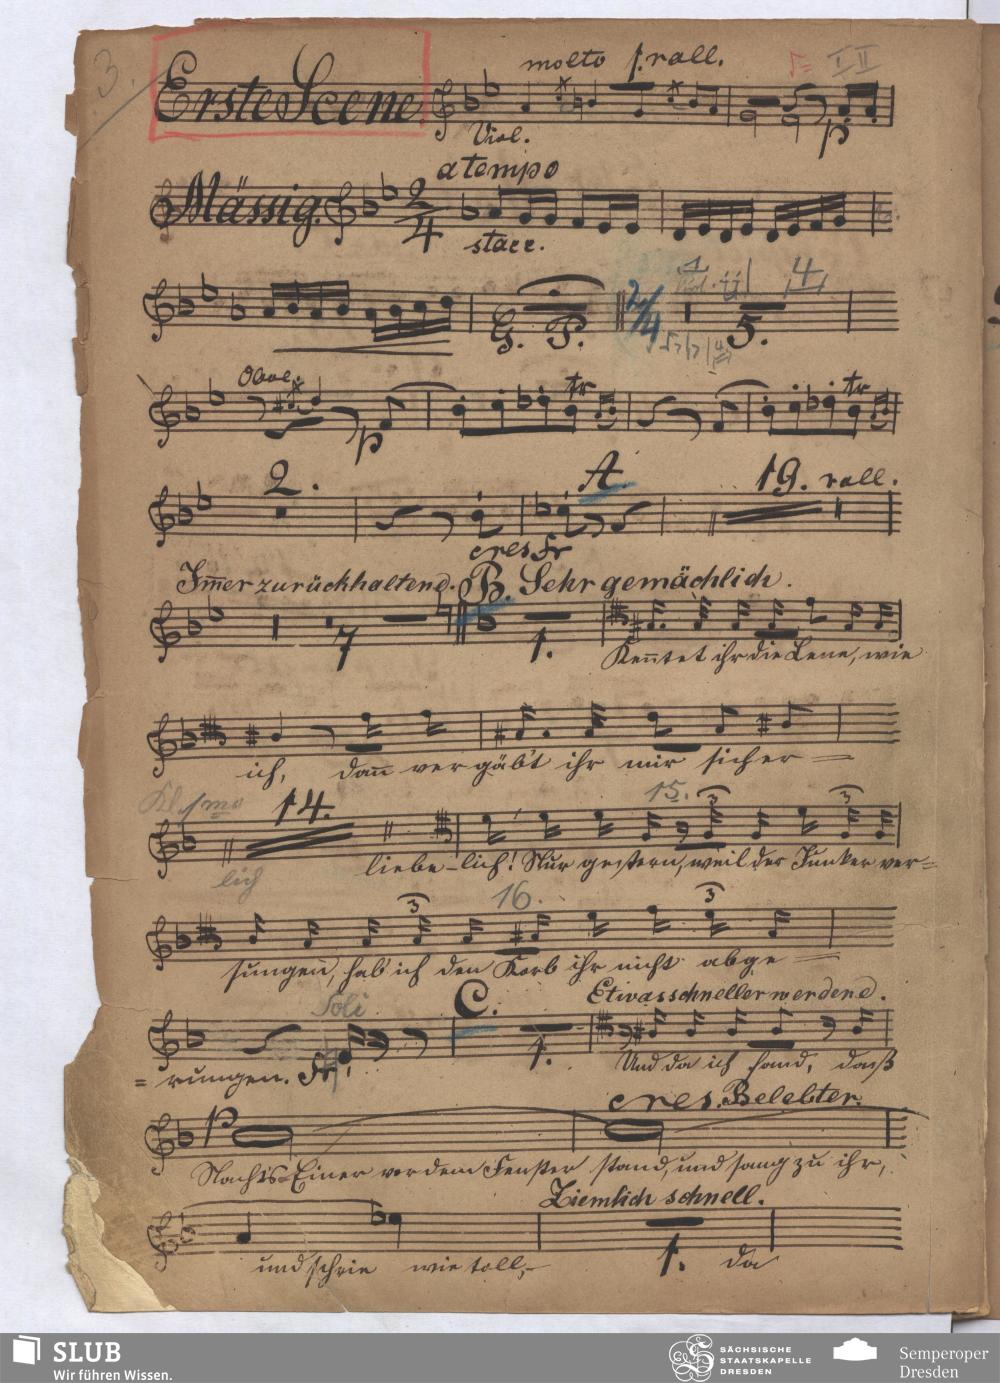 3.
Erste Scene
molto
rall.
I II
Viol.
p.
a tempo
Mässig.
2/4
stacc.
G. P.
2/4
4
5.
Oboe.
tr
tr
p
2.
A.
19. rall.
cres
Immer zurückhaltend. B. Sehr gemächlich.
7
1.
Kenntet ihr die Lene, wie
ich, dann vergäbt ihr mir sicher =
Kl. 1mo
14.
15.
3
3
lich
liebe-lich! Nur gestern, weil der Junker ver=
3
16.
3
sungen, hab' ich den Korb ihr nicht abge =
Soli
C.
Etwas schneller werdend.
1.
= rungen.
Und da ich fand, daß
cres. Belebter.
p
Nachts Einer vor dem Fenster stand, und sang zu ihr,
Ziemlich schnell.
und schrie wie toll,
1.
da
SLUB
Wir führen Wissen.
SÄCHSISCHE
STAATSKAPELLE
DRESDEN
Semperoper
Dresden